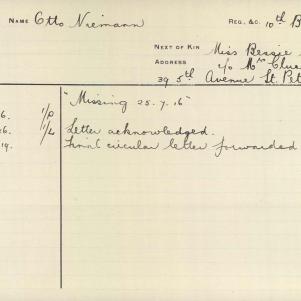 NAME Otto Niemann REG. &C. 10th B
NEXT OF KIN Miss Bessie
ADDRESS c/o Mrs Clue
39 5th Avenue St. Pet
"Missing 25.7.16"
6. 1/D
26. 1/L Letter acknowledged.
19. circular letter forwarded